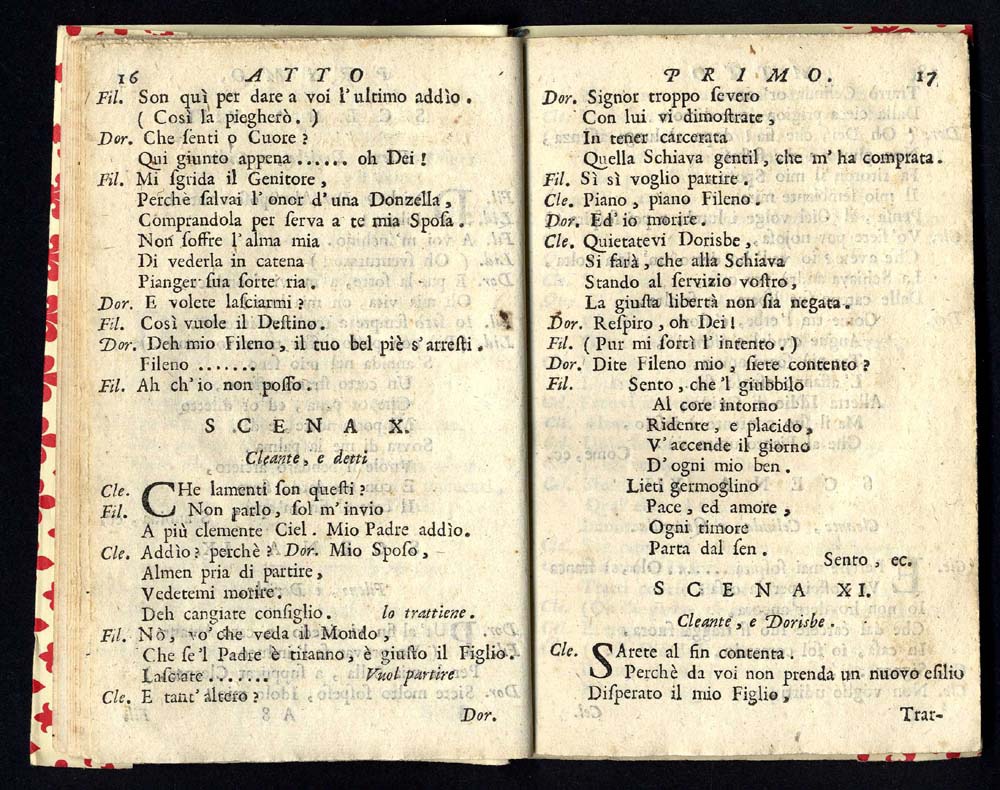 16 ATTO
Fil. Son quì per dare a voi l'ultimo addìo.
( Così la piegherò. )
Dor. Che ſenti o Cuore?
Qui giunto appena ...... oh Dei!
Fil. Mi ſgrida il Genitore,
Perchè ſalvai l'onor d'una Donzella,
Comprandola per ſerva a te mia Spoſa.
Non ſoffre l'alma mia
Di vederla in catena
Pianger ſua ſorte ria.
Dor. E volete laſciarmi?
Fil. Così vuole il Deſtino.
Dor. Deh mio Fileno, il tuo bel piè s'arreſti.
Fileno .......
Fil. Ah ch'io non poſſo.
SCENA X.
Cleante, e detti
Cle. CHe lamenti ſon queſti?
Fil. Non parlo, ſol m'invio
A più clemente Ciel. Mio Padre addìo.
Cle. Addìo? perchè? Dor. Mio Spoſo,
Almen pria di partire,
Vedetemi morire.
Deh cangiate conſiglio. lo trattiene.
Fil. Nò, vo' che veda il Mondo,
Che ſe'l Padre è tiranno, è giuſto il Figlio.
Laſciate ....... Vuol partire
Cle. E tant' altero?
Dor.
PRIMO. 17
Dor. Signor troppo ſevero
Con lui vi dimoſtrate,
In tener carcerata
Quella Schiava gentil, che m' ha comprata.
Fil. Sì sì voglio partire.
Cle. Piano, piano Fileno.
Dor. Ed'io morire.
Cle. Quietatevi Dorisbe,
Si farà, che alla Schiava
Stando al ſervizio voſtro,
La giuſta libertà non ſia negata.
Dor. Reſpiro, oh Dei!
Fil. ( Pur mi ſortì l'intento. )
Dor. Dite Fileno mio, ſiete contento?
Fil. Sento, che 'l giubbilo
Al core intorno
Ridente, e placido,
V'accende il giorno
D'ogni mio ben.
Lieti germoglino
Pace, ed amore,
Ogni timore
Parta dal ſen.
Sento, ec.
SCENA XI.
Cleante, e Dorisbe.
Cle. SArete al fin contenta.
Perchè da voi non prenda un nuovo eſilio
Diſperato il mio Figlio,
Trar-